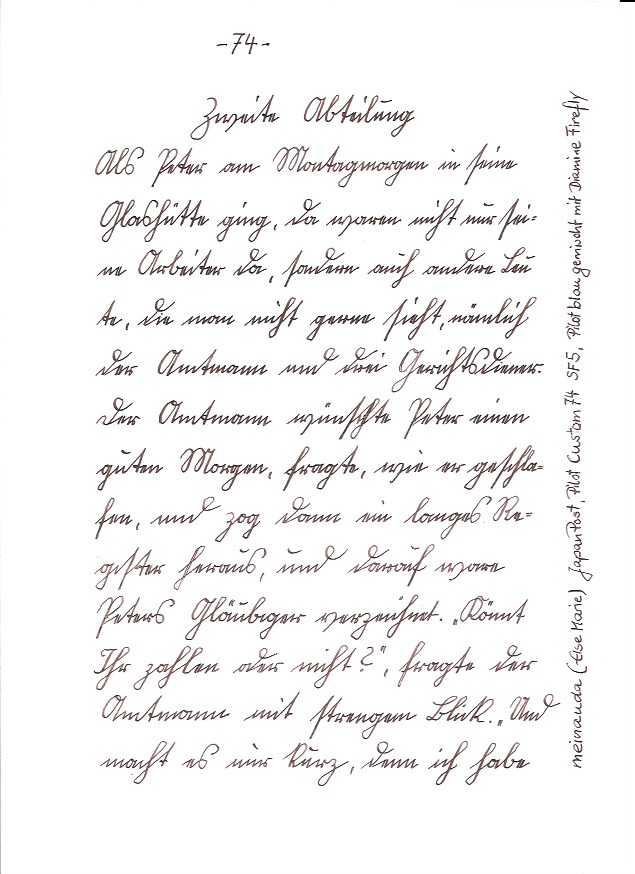 -74-
Zweite Abteilung
Als Peter am Montagmorgen in seine
Glashütte ging, da waren nicht nur sei-
ne Arbeiter da, sondern auch andere Leu
te, die man nicht gerne sieht, nämlich
der Amtmann und drei Gerichtsdiener.
Der Amtmann wünschte Peter einen
guten Morgen, fragte, wie er geschla-
fen, und zog dann ein langes Re-
gister heraus, und darauf ware
Peters Gläubiger verzeichnet. „Könnt
Ihr zahlen oder nicht?", fragte der
Amtmann mit strengem Blick. „Und
macht es nur kurz, denn ich habe
meinauda (-Else Marie) JapanPost, Pilot Custom 74 SF5, Pilot blau gemischt mit Diamine Firefly